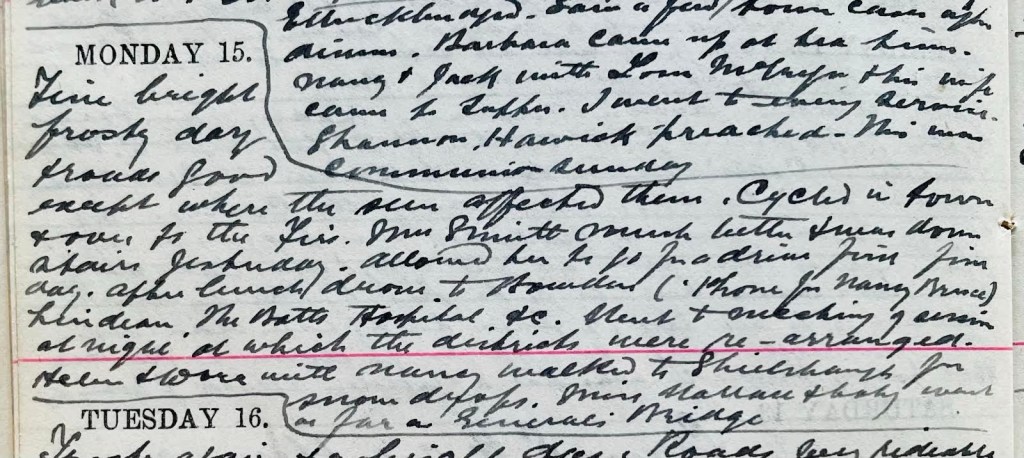 dinner. Barbara came up at tea time.
Nancy & Jack with Tom & his wife
came to supper. I went to evening service.
Shannon, Hawick preached - This was
Communion Sunday
MONDAY 15.
Fine bright
frosty day
& roads good
except where the sun affected them. Cycled in town
& over to the Firs. Mrs Smith much better & was down
stairs yesterday. Allowed her to go for a drive first fine
day. After lunch drove to Howden ('Phone for Nancy Bruce)
Lindean, The Batts Hospital &c. Went to meeting of session
at night at which the districts were re-arranged.
Helen & with Nancy walked to for
snowdrops. Miss & went
as far as General's Bridge
TUESDAY 16.
again & bright day. Roads very